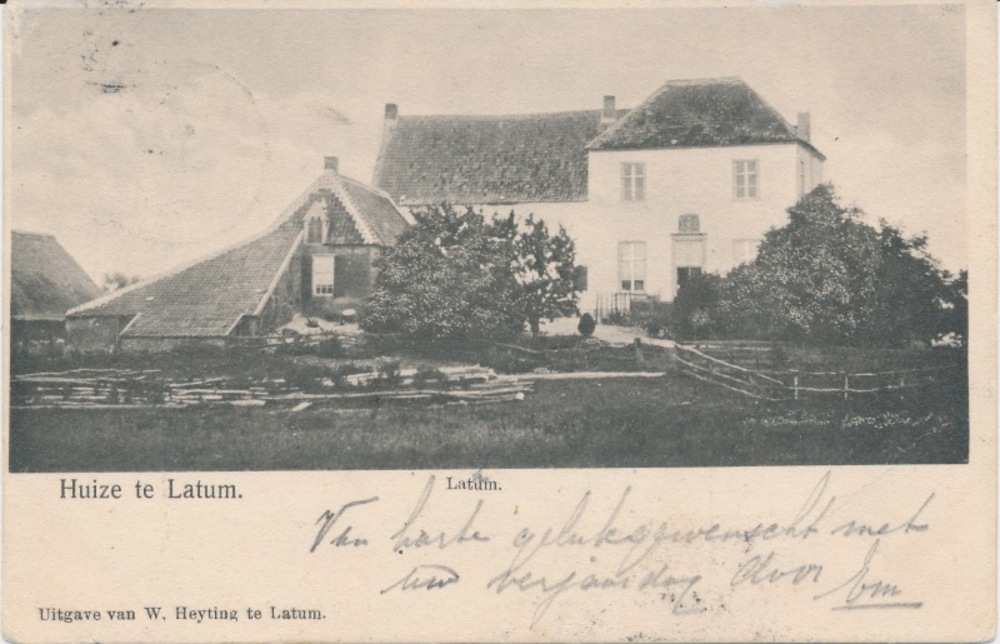 Huize te Latum.
Latum.
Van harte gelukgewenscht met
uw verjaardag door Em
Uitgave van W. Heyting te Latum.